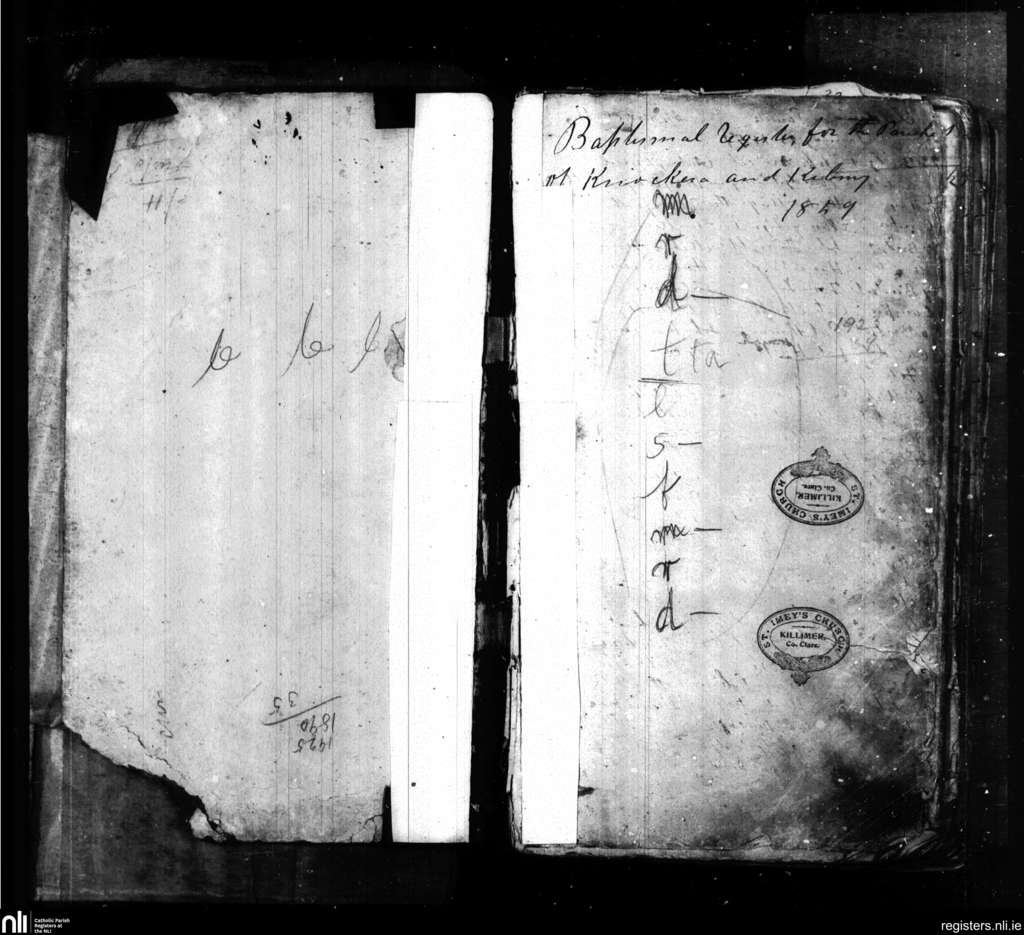 b b b
1925
1890
35
Baptismal Register for the Parishes
of Knockera and Killimer
1859
m
r
d —
192
t ta
l
s —
f
m —
r
d —
ST. IMEY'S CHURCH
KILLIMER,
Co. Clare.
ST. IMEY'S CHURCH
KILLIMER,
Co. Clare.
nli
Catholic Parish
Registers at
the NLI
registers.nli.ie